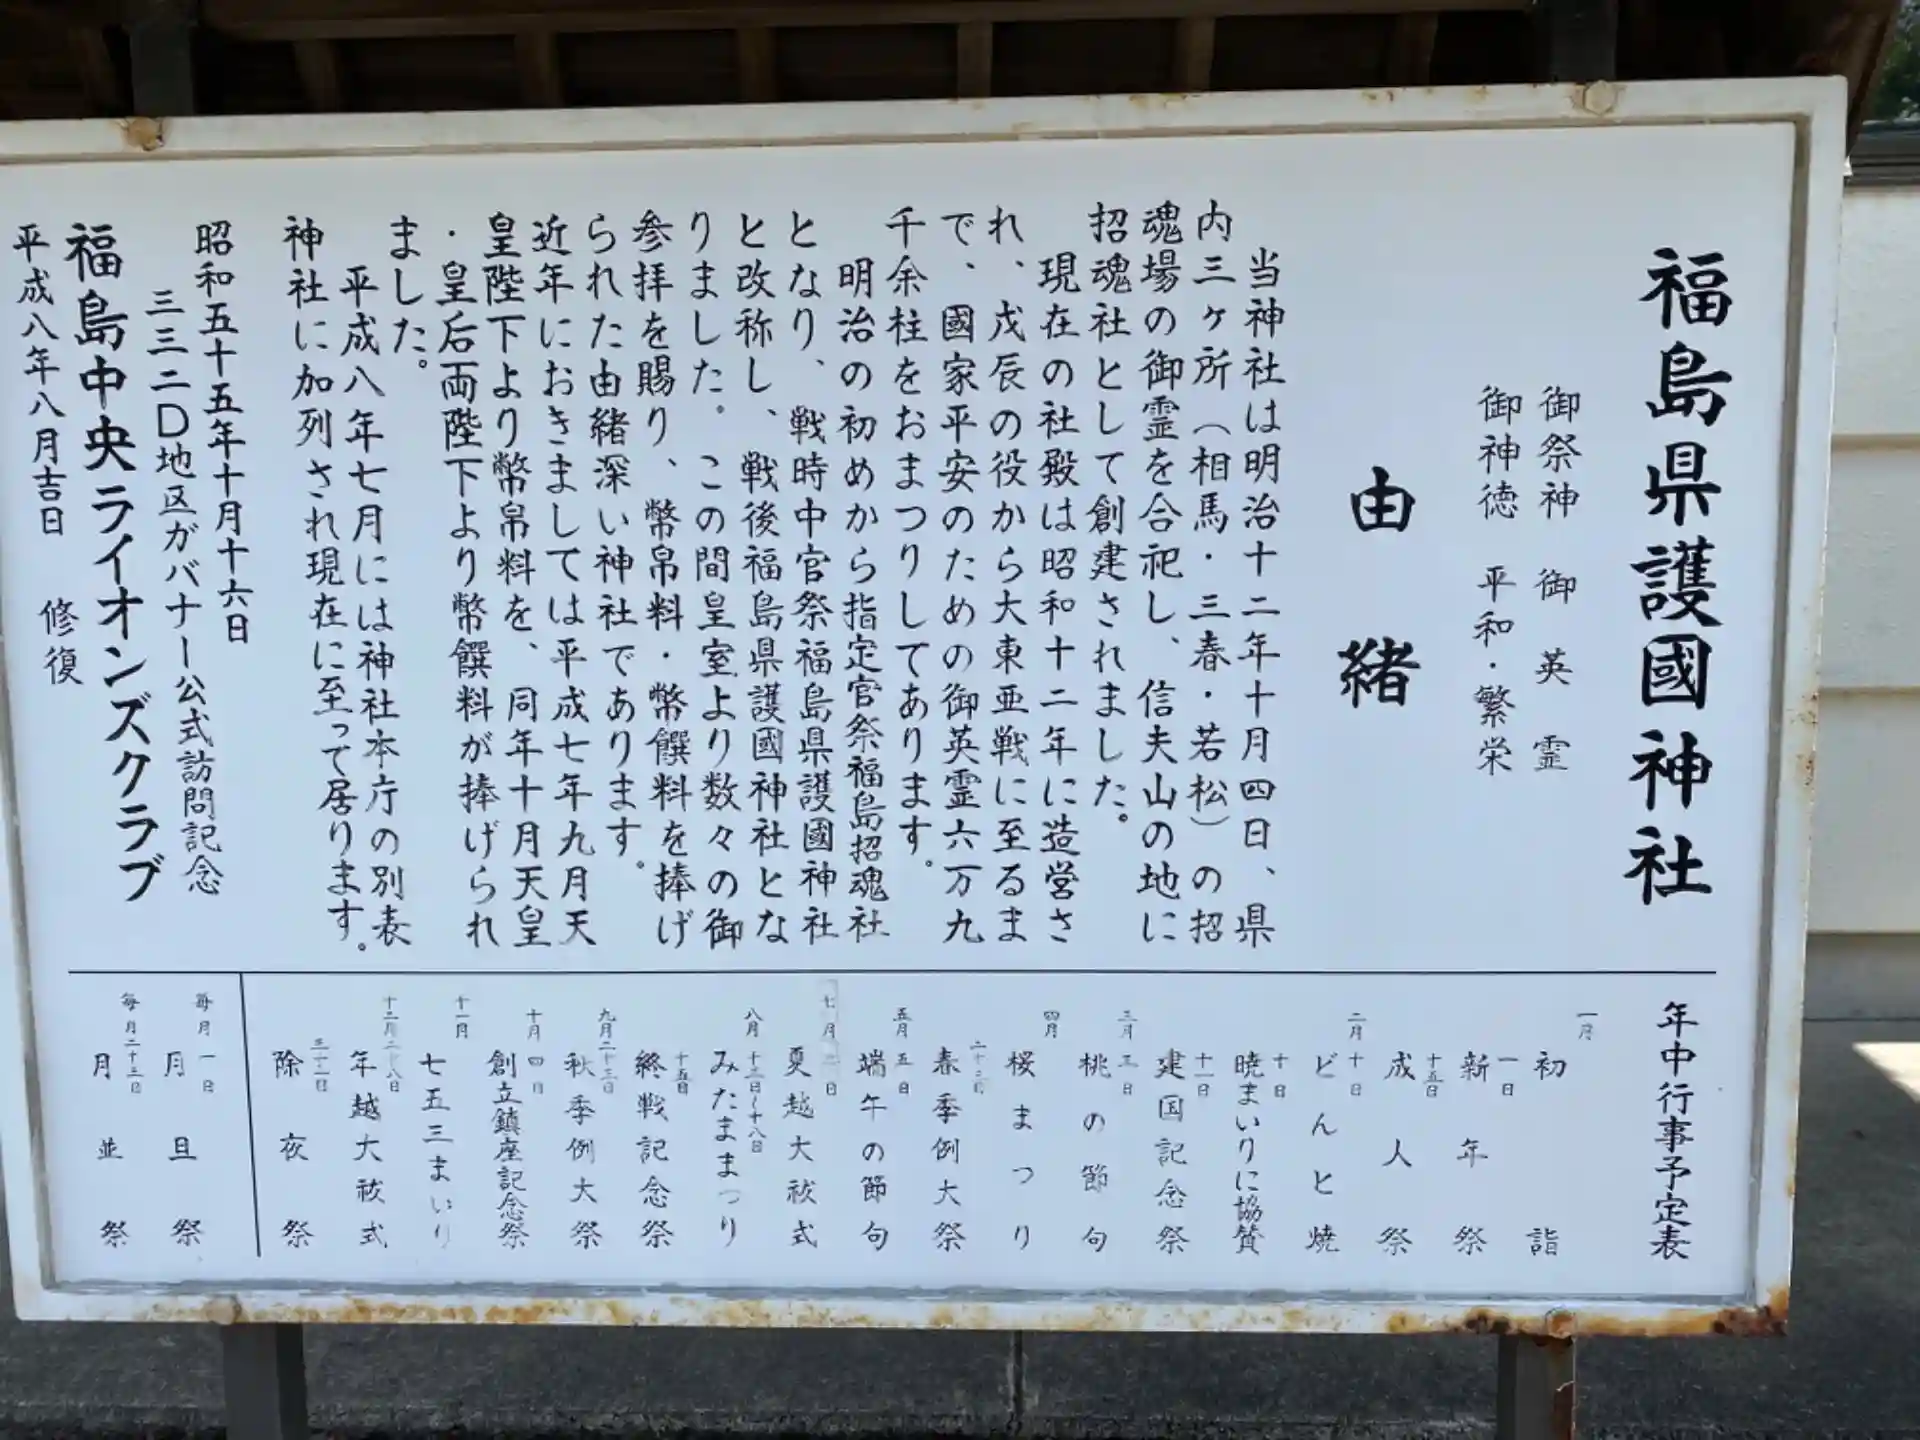 福島県護國神社
御祭神 御英霊
御神徳 平和・繁栄
由緒
当神社は明治十二年十月四日、県
内三ヶ所（相馬・三春・若松）の招
魂場の御霊を合祀し、信夫山の地に
招魂社として創建されました。
現在の社殿は昭和十二年に造営さ
れ、戊辰の役から大東亜戦に至るま
で、國家平安のための御英霊六万九
千余柱をおまつりしてあります。
明治の初めから指定官祭福島招魂社
となり、戦時中官祭福島県護國神社
と改称し、戦後福島県護國神社とな
りました。この間皇室より数々の御
参拝を賜り、幣帛料・幣饌料を捧げ
られた由緒深い神社であります。
近年におきましては平成七年九月天
皇陛下より幣帛料を、同年十月天皇
・皇后両陛下より幣饌料が捧げられ
ました。
平成八年七月には神社本庁の別表
神社に加列され現在に至って居ります。
昭和五十五年十月十六日
三三二D地区ガバナー公式訪問記念
福島中央ライオンズクラブ
平成八年八月吉日 修復
年中行事予定表
一月
初詣
一日 新年祭
十五日 成人祭
二月十日 どんと焼
十日 暁まいりに協賛
十一日 建国記念祭
三月三日 桃の節句
四月 桜まつり
春季例大祭
五月五日 端午の節句
七月 日 夏越大祓式
八月十三日〜十八日 みたままつり
十五日 終戦記念祭
九月二十三日 秋季例大祭
十月四日 創立鎮座記念祭
十一月 七五三まいり
十二月二十八日 年越大祓式
三十一日 除夜祭
毎月一日 月旦祭
毎月二十三日 月並祭